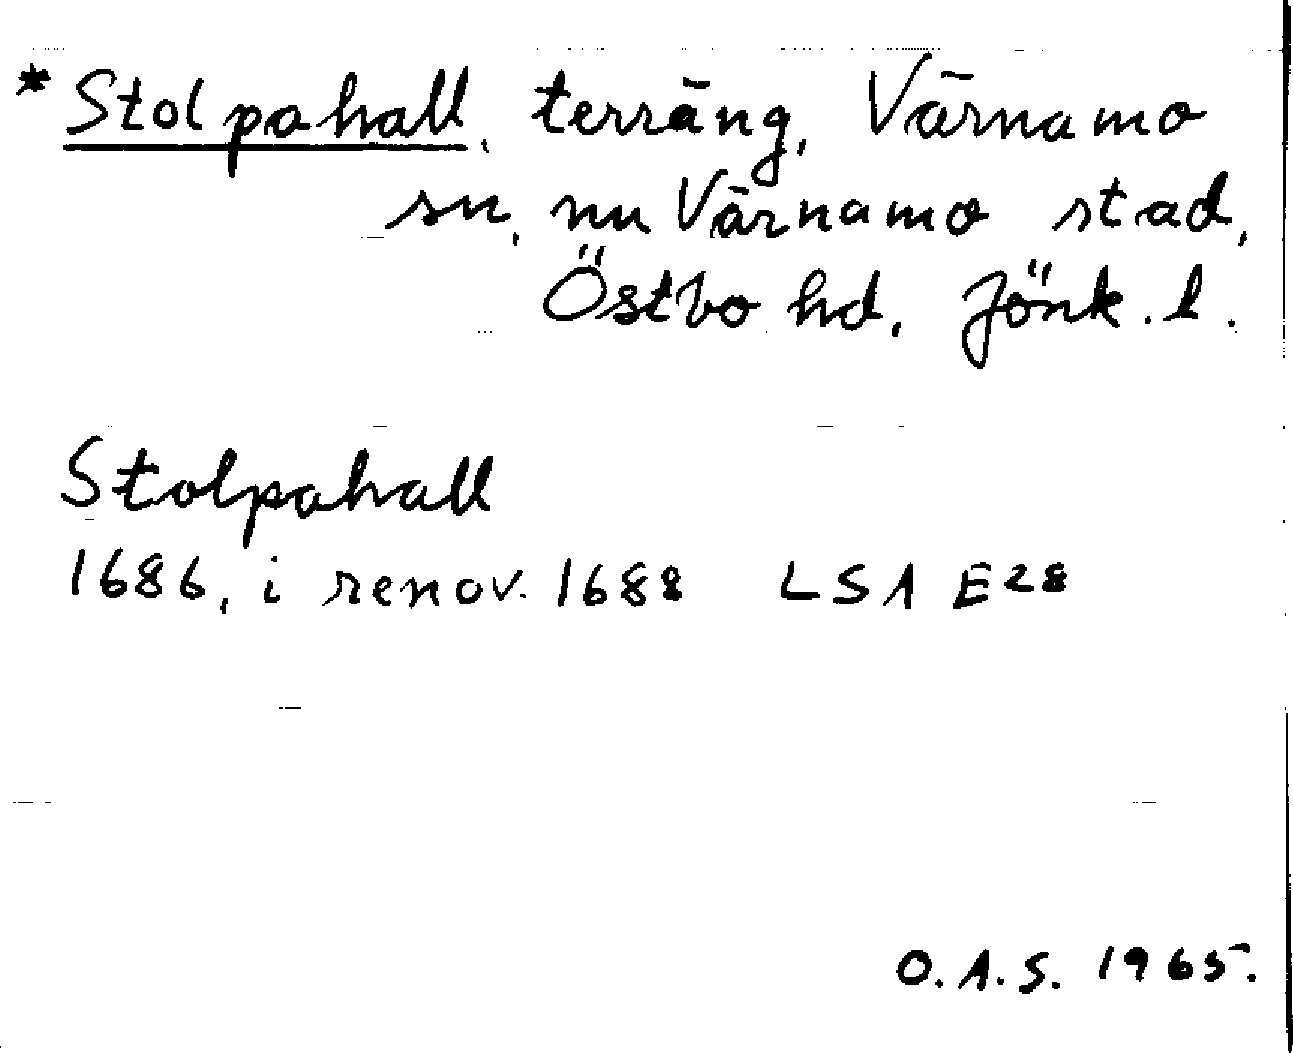 *Stolpahall, terräng, Värnamo
sn, nu Värnamo stad,
Östbo hd, Jönk. l.
Stolpahall
1686, i renov. 1688 LSA E28
O.A.S. 1965.